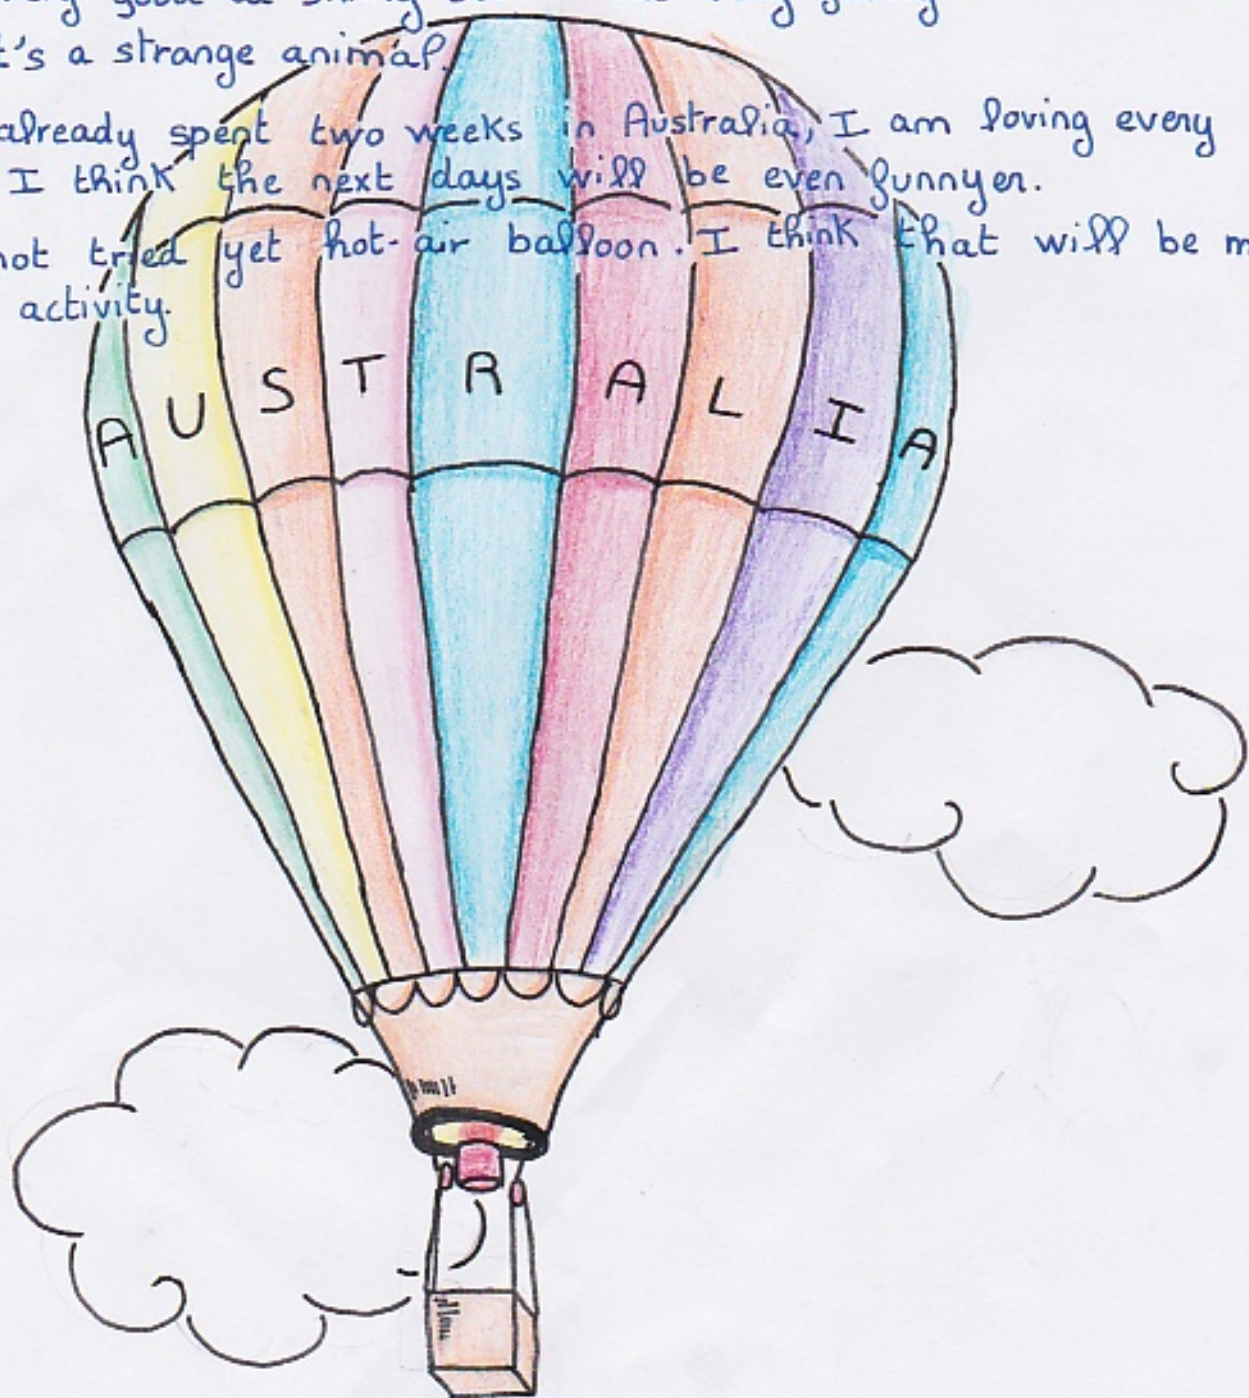 very good at
t's a strange animal.
already spent two weeks in Australia, I am loving every
I think the next days will be even funnyer.
not tried yet hot-air balloon. I think that will be m
activity.
AUSTRALIA